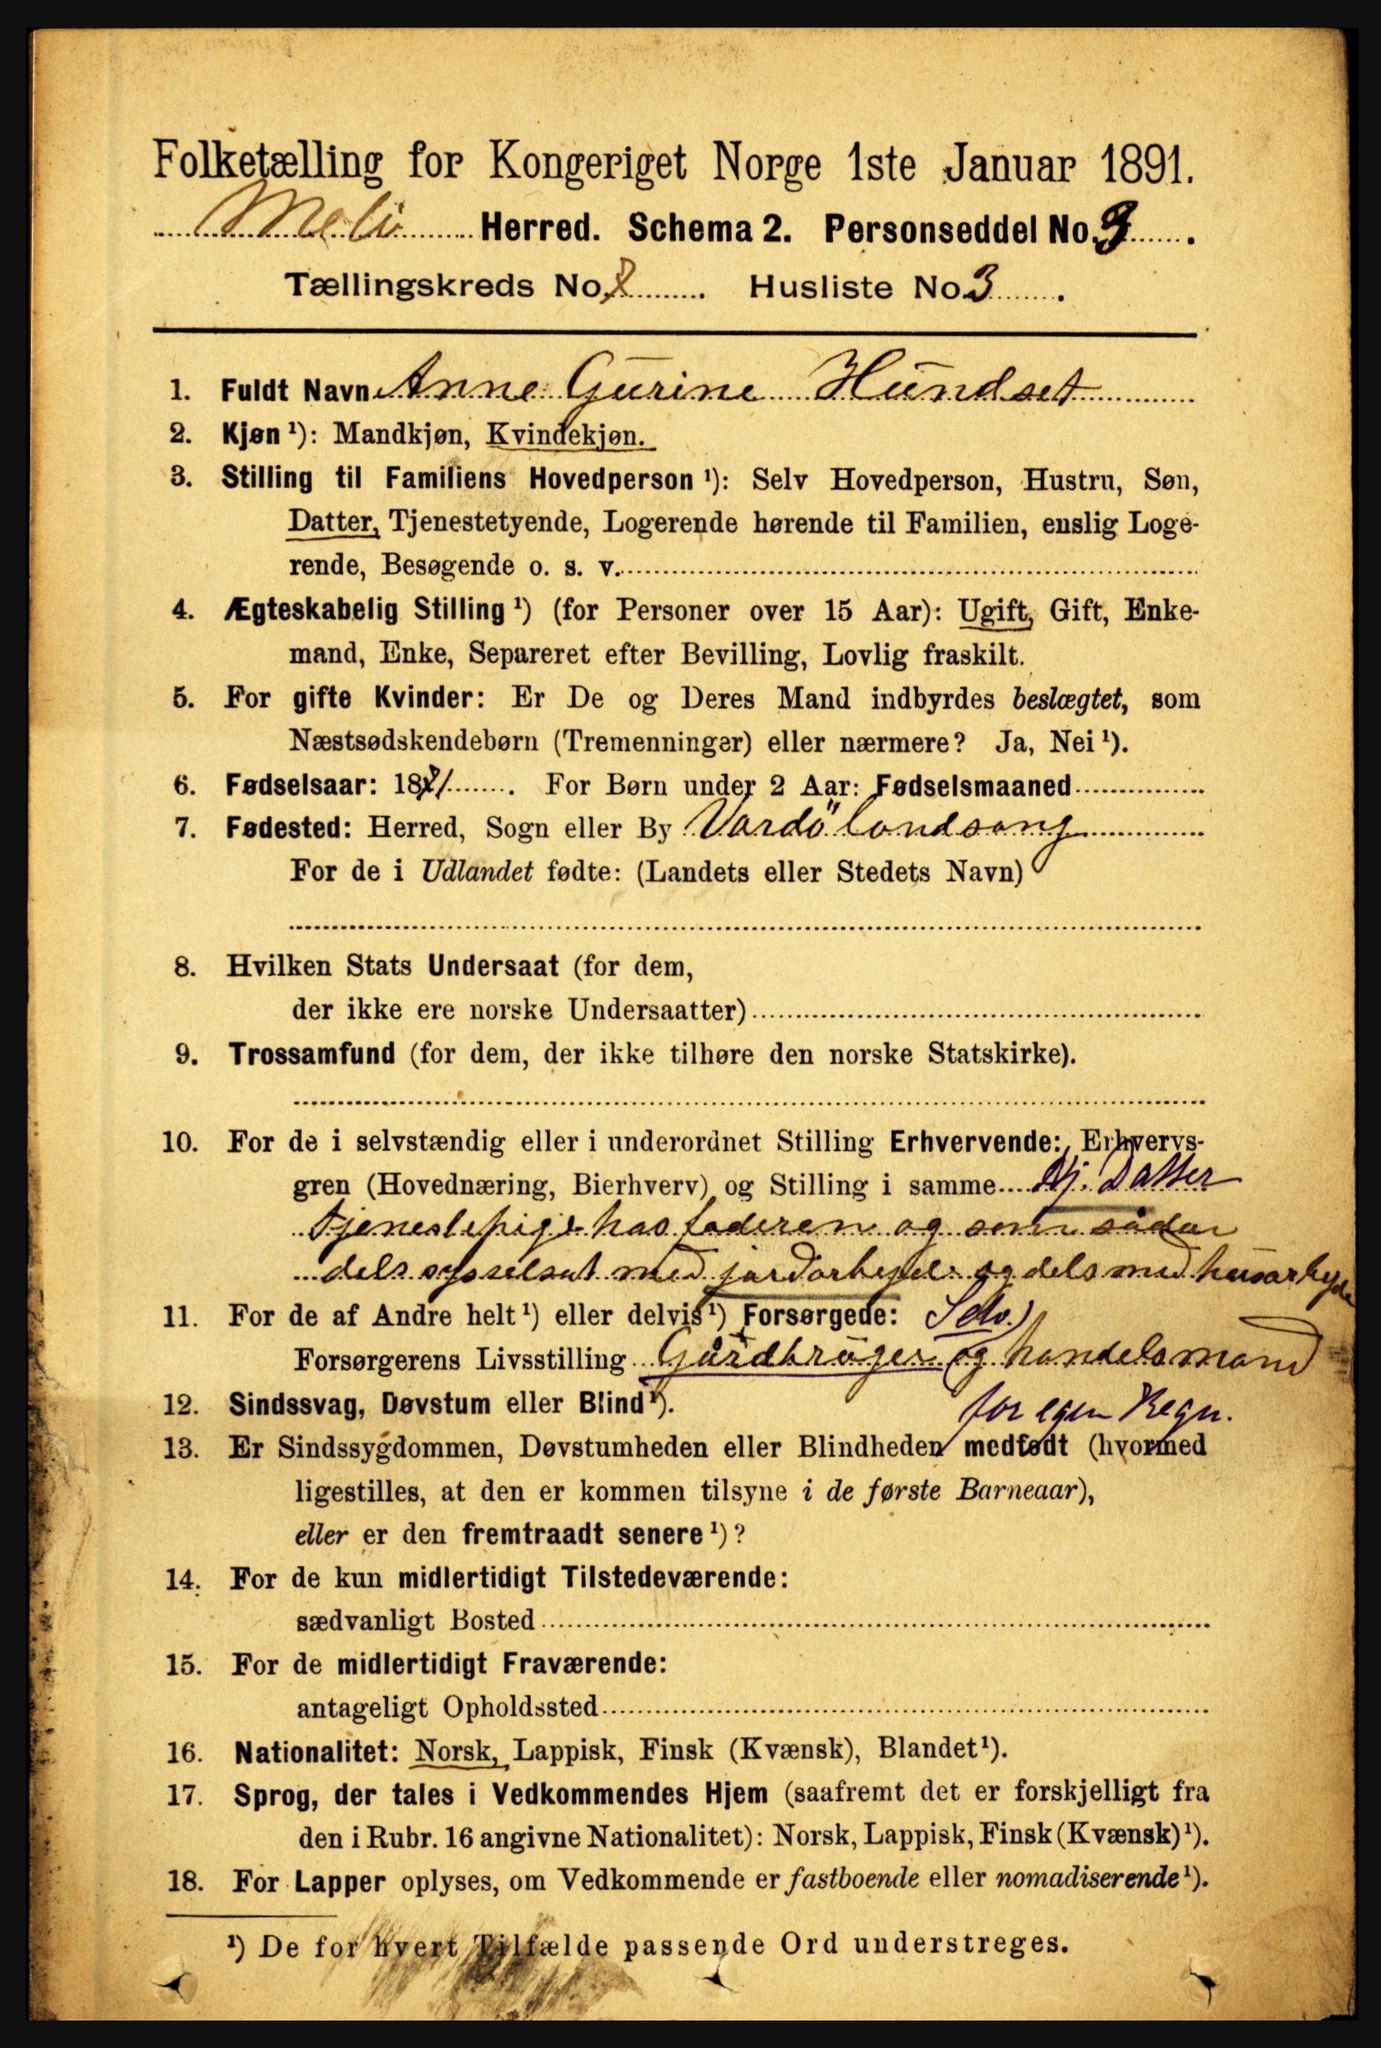 Folketælling for Kongeriget Norge 1ste Januar 1891.
Melö Herred. Schema 2. Personseddel No. 3.
Tællingskreds No. 8. Husliste No. 3.
1. Fuldt Navn Anne Gurine Hundset
2. Kjøn¹): Mandkjøn, Kvindekjøn.
3. Stilling til Familiens Hovedperson¹): Selv Hovedperson, Hustru, Søn,
Datter, Tjenestetyende, Logerende hørende til Familien, enslig Loge-
rende, Besøgende o. s. v.
4. Ægteskabelig Stilling¹) (for Personer over 15 Aar): Ugift, Gift, Enke-
mand, Enke, Separeret efter Bevilling, Lovlig fraskilt.
5. For gifte Kvinder: Er De og Deres Mand indbyrdes beslægtet, som
Næstsødskendebørn (Tremenninger) eller nærmere? Ja, Nei¹).
6. Fødselsaar: 1871. For Børn under 2 Aar: Fødselsmaaned
7. Fødested: Herred, Sogn eller By Vardö landsong
For de i Udlandet fødte: (Landets eller Stedets Navn)
8. Hvilken Stats Undersaat (for dem,
der ikke ere norske Undersaatter)
9. Trossamfund (for dem, der ikke tilhøre den norske Statskirke).
10. For de i selvstændig eller i underordnet Stilling Erhvervende: Erhvervs-
gren (Hovednæring, Bierhverv) og Stilling i samme Hj. Datter
tjenestepige hos faderen og som sådan
dels sysselsat med jordarbejde og dels med husarbejde
11. For de af Andre helt¹) eller delvis¹) Forsørgede: Selv.
Forsørgerens Livsstilling Gårdbruger og handelsmand
for egen Regn.
12. Sindssvag, Døvstum eller Blind¹).
13. Er Sindssygdommen, Døvstumheden eller Blindheden medfødt (hvormed
ligestilles, at den er kommen tilsyne i de første Barneaar),
eller er den fremtraadt senere¹)?
14. For de kun midlertidigt Tilstedeværende:
sædvanligt Bosted
15. For de midlertidigt Fraværende:
antageligt Opholdssted
16. Nationalitet: Norsk, Lappisk, Finsk (Kvænsk), Blandet¹).
17. Sprog, der tales i Vedkommendes Hjem (saafremt det er forskjelligt fra
den i Rubr. 16 angivne Nationalitet): Norsk, Lappisk, Finsk (Kvænsk)¹).
18. For Lapper oplyses, om Vedkommende er fastboende eller nomadiserende¹).
¹) De for hvert Tilfælde passende Ord understreges.